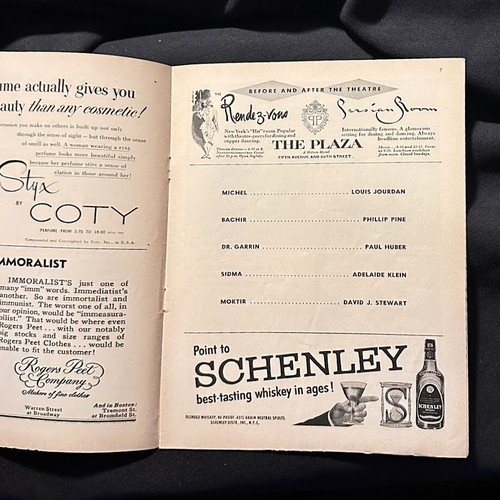 me actually gives you
auty than any cosmetic!
ression you make on others is built up not only
through the sense of sight—but through the sense
of smell as well. A woman wearing a rare
perfume looks more beautiful simply
because her perfume stirs a sense of
elation in those around her!
Styx
BY
COTY
PERFUME FROM 2.75 TO
Compounded and Copyrighted by Coty, Inc., in U.S.A.
MMORALIST
IMMORALIST'S just one of
many "imm" words. Immediatist's
another. So are immortalist and
immunist. The worst one of all, in
our opinion, would be "immeasura-
bilist." That would be where even
Rogers Peet . . . with our notably
big stocks and size ranges of
Rogers Peet Clothes . . . would be
unable to fit the customer!
Rogers Peet
Company
Makers of fine clothes
Warren Street
at Broadway
And in Boston:
Tremont St.
at Bromfield St.
BEFORE AND AFTER THE THEATRE
THE
Rendez-vous
New York's "Hit" room. Popular
with theatre-goers for dining and
supper dancing.
PP
Persian Room
Internationally famous. A glamorous
setting for dining and dancing. Always
a headline entertainment.
THE PLAZA
A Hilton Hotel
FIFTH AVENUE AND 59TH STREET
MICHEL LOUIS JOURDAN
BACHIR PHILLIP PINE
DR. GARRIN PAUL HUBER
SIDMA ADELAIDE KLEIN
MOKTIR DAVID J. STEWART
Point to
SCHENLEY
best-tasting whiskey in ages!
S
SCHENLEY
BLENDED WHISKEY, 86 PROOF. 65% GRAIN NEUTRAL SPIRITS.
SCHENLEY DISTR., INC., N.Y.C.